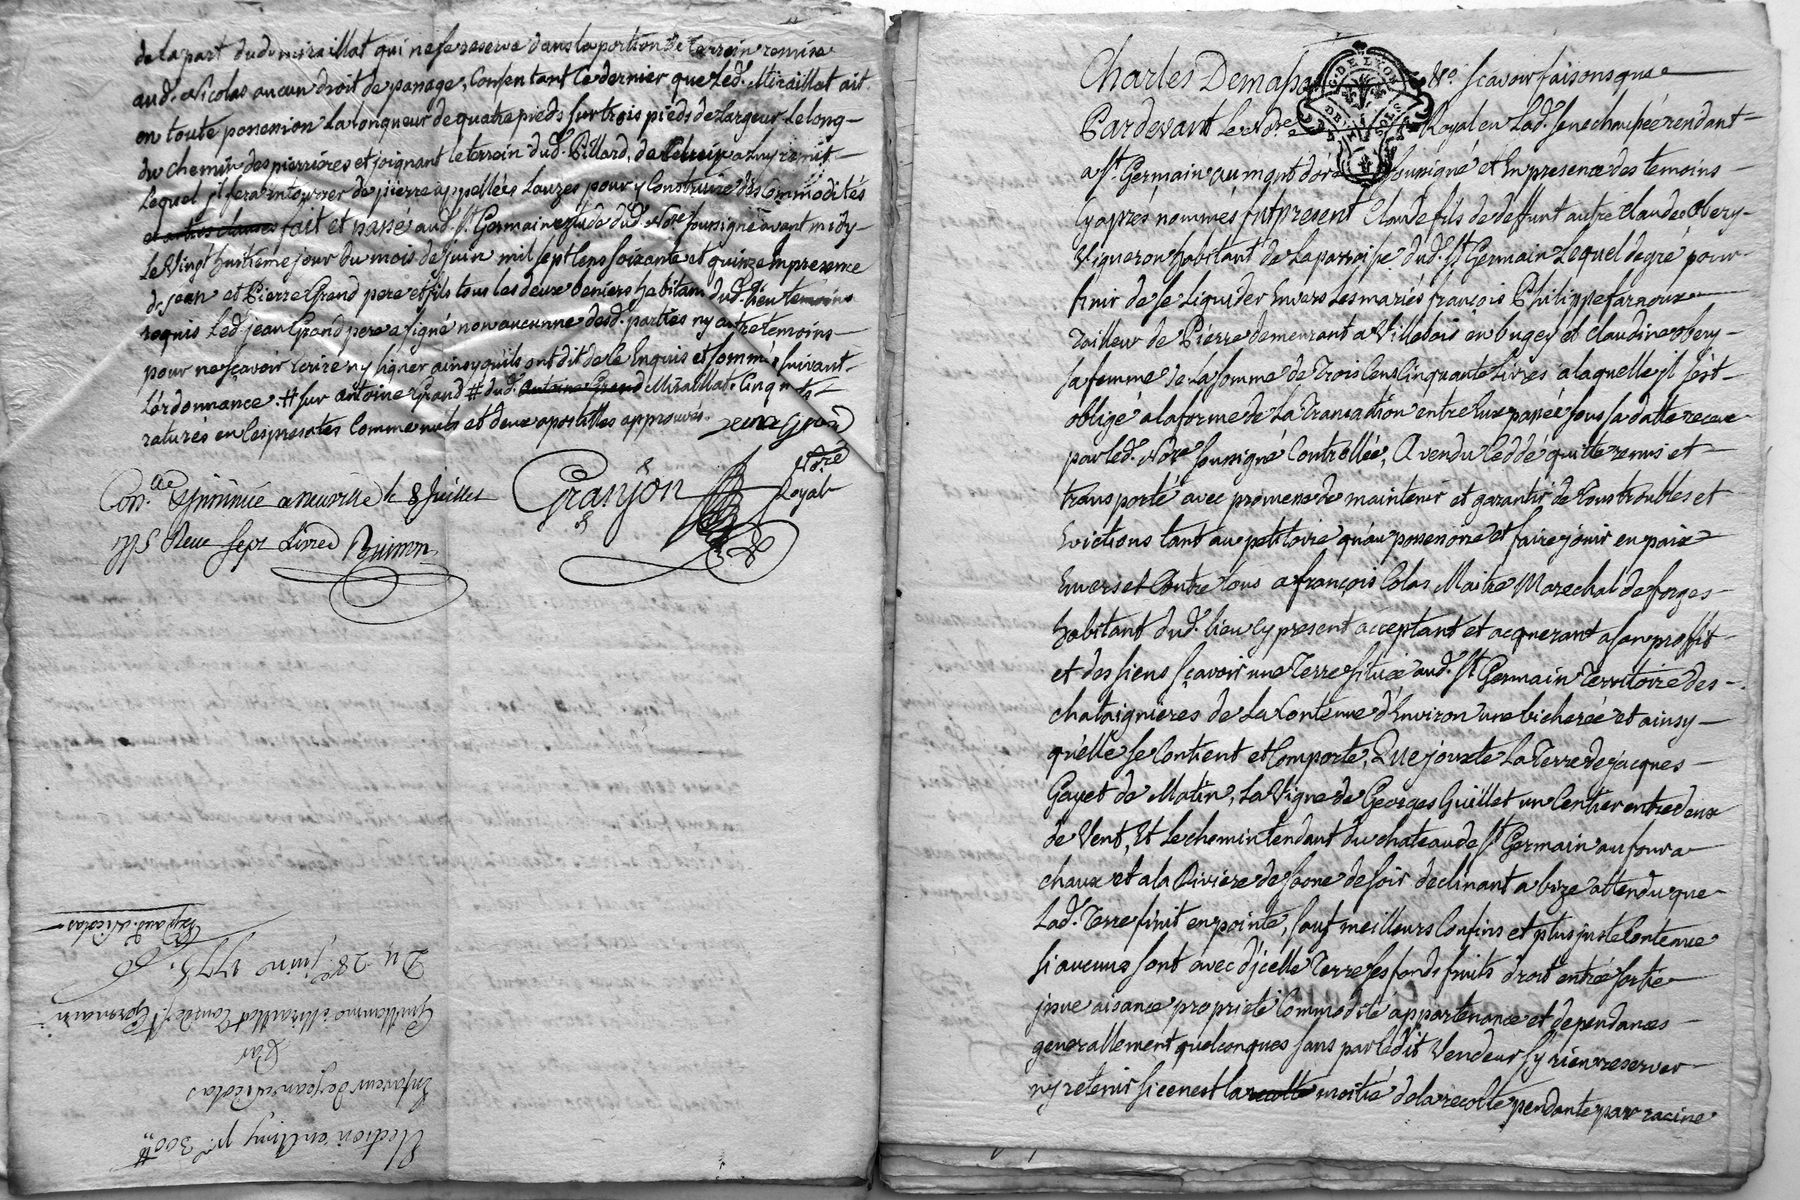 de la part dud. miraillat qui ne se reserve dans la portion de terrein remise
aud. Nicolas aucun droit de panage, Consentant ce dernier que led. Miraillat ait
en toute possession La longueur de quatre pieds sur trois pieds de Largeur Le long
du chemin des pierrières et joignant le terrein dud. Pillard,
Lequel jl fera entourrer de pierre appellées Lauzes pour y Construire des Commodités
fait et passé aud. St. Germain etude dud. Nore. soussigné avant midy
Le Vingt huitième jour du mois de juin mil sept Cens soixante et quinze En presence
de jean et Pierre Grand pere et fils tous les deux habitans dud. lieu temoins
requis Led. jean Grand pere a signé non aucunne desd. parties ny autre temoins
pour ne sçavoir Ecrire ny signer ainsy qu'ils ont dit de ce Enquis et sommés suivant
L'ordonnance. # sur antoine Grand # dud. Antoine Grand Miraillat. Cinq mts
raturés en Ces presates Comme nuls et deux apostilles approuvés. jean Grand
Con.lé a neuville le 8 juillet Granjon Nore. Royal
1775 Reçu sept Livres
Election en Amy pr. 300tt
En faveur de jean Nicolas
Par
Guillaume Miraillat de St. Germain
Du 28e. juin 1775.
Exp aud. Nicolas
Charles Demasso sçavoir faisons que
G. DE LYON
Pardevant Le Nore. Royal en Lad. senechaussée rendant
a St. Germain au mont d'or soussigné et En presence des temoins
Cy après nommés fut present Claude fils de deffunt autre claude obery
Vigneron habitant de La parroisse dud. St. Germain Lequel de gré pour
finir de se Liquider Envers Les mariés françois Philippe farnoux
Tailleur de Pierre demeurant a Villebois en bugey et claudine obery
sa femme de La somme de Trois Cens Cinquante Livres a laquelle jl s'est
obligé a la forme de La Transaction entre Eux passée sous sa datte receue
par led. Nore. soussigné Controllée, A vendu Ceddé quitté remis et
transporté avec promesse de maintenir et garantir de Tous troubles et
Evictions tant au petitoire qu'au possessoire et faire jouir en paix
Envers et Contre Tous a françois Colas Maitre Marechal de forges
habitant dud. lieu Cy present acceptant et acquerant a son proffit
et des siens sçavoir une Terre située aud. St. Germain Territoire des
chataignieres de La Contenue d'Environ une bicherée et ainsy
qu'elle se Contient et Comporte, Que jouxte La Terre de jacques
Gayet de Matin, La Vigne de Georges Guillet un Centier entre deux
de Vent, Et Le chemin tendant du chateau de St. Germain au four a
chaux et a la Riviere de saone de soir declinant a bize attendu que
Lad. Terre finit en pointe, sauf meilleurs Confins et plus juste Contenue
si aucuns sont avec d'jcelle Terre ses fonds fruits droit entrée sortie
jssue aisance proprieté Commodité appartenance et dependances
generallement quelconques sans par Ledit Vendeur sy rien reserver
ny retenir si ce n'est la recolte moitié de la recolte pendante par racine